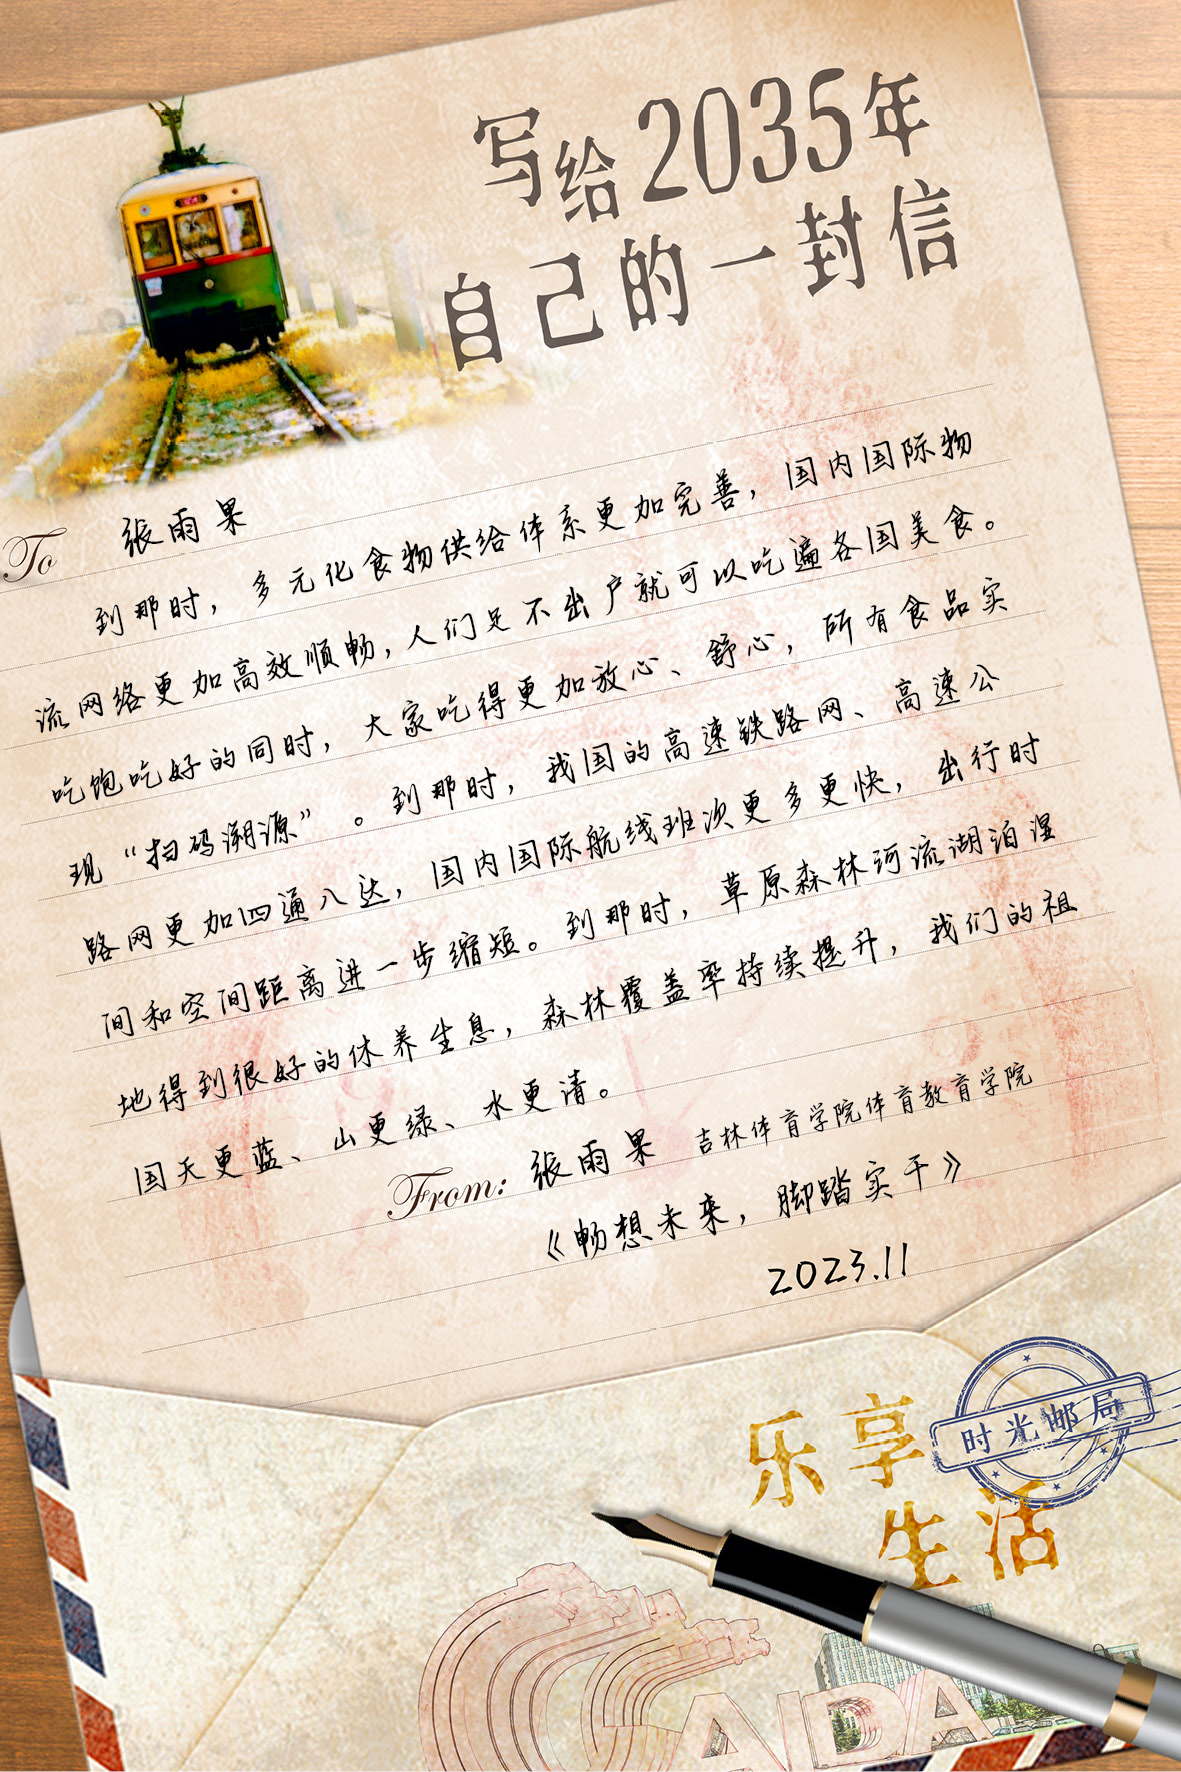 写给2035年
自己的一封信
To 张雨果
到那时，多元化食物供给体系更加完善，国内国际物
流网络更加高效顺畅，人们足不出户就可以吃遍各国美食。
吃饱吃好的同时，大家吃得更加放心、舒心，所有食品实
现“扫码溯源”。到那时，我国的高速铁路网、高速公
路网更加四通八达，国内国际航线班次更多更快，出行时
间和空间距离进一步缩短。到那时，草原森林河流湖泊湿
地得到很好的休养生息，森林覆盖率持续提升，我们的祖
国天更蓝、山更绿、水更清。
From: 张雨果 吉林体育学院体育教育学院
《畅想未来，脚踏实干》
2023.11
时光邮局
乐享
生活